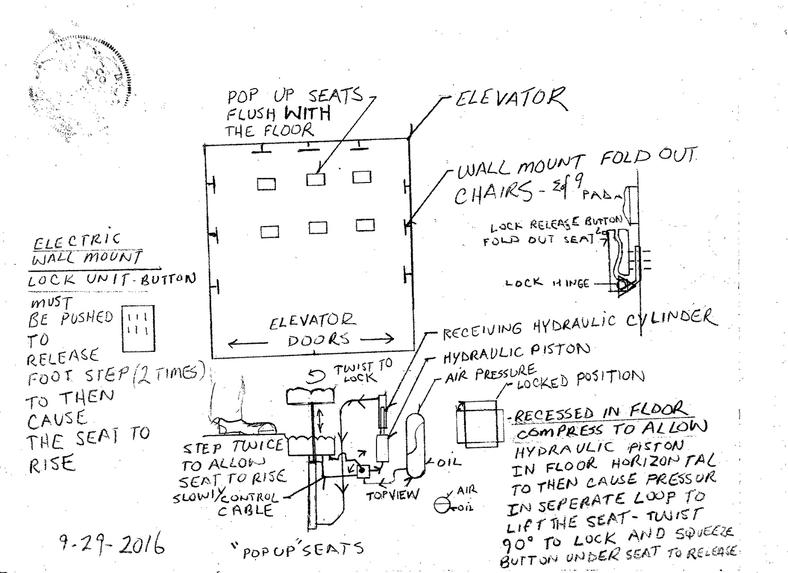 POP UP SEATS
FLUSH WITH
THE FLOOR
ELEVATOR
WALL MOUNT FOLD OUT
CHAIRS - of 9
PAD
LOCK RELEASE BUTTON
FOLD OUT SEAT
LOCK HINGE
ELECTRIC
WALL MOUNT
LOCK UNIT-BUTTON
MUST
BE PUSHED
TO
RELEASE
FOOT STEP (2 TIMES)
TO THEN
CAUSE
THE SEAT TO
RISE
ELEVATOR
DOORS
RECEIVING HYDRAULIC CYLINDER
HYDRAULIC PISTON
AIR PRESSURE
LOCKED POSITION
TWIST TO
LOCK
STEP TWICE
TO ALLOW
SEAT TO RISE
SLOWLY
CONTROL
CABLE
TOPVIEW
OIL
AIR
OIL
-RECESSED IN FLOOR
COMPRESS TO ALLOW
HYDRAULIC PISTON
IN FLOOR HORIZONTAL
TO THEN CAUSE PRESSUR
IN SEPERATE LOOP TO
LIFT THE SEAT-TWIST
90° TO LOCK AND SQUEEZE
BUTTON UNDER SEAT TO RELEASE
9-29-2016
"POPUP" SEATS